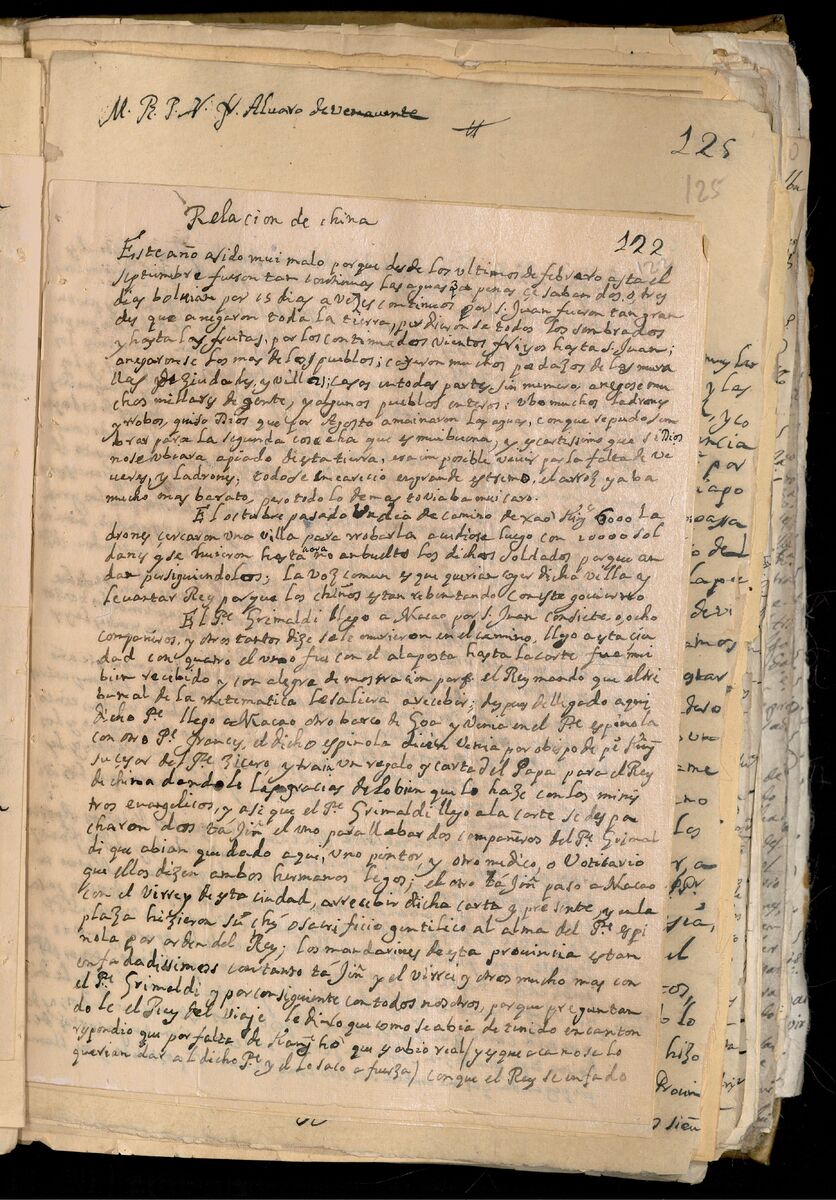 M. R. P. N. Fr. Alvaro de Venavente
125
125
Relacion de china
122
Este año asido mui malo porque desde los ultimos de febrero asta el
septumbre fueron tam continuas las aguas q̃ apenas çesaban dos, o tres
dias bolvian por 15 dias a vezes continuos por s. Juan fueron tan gran
des que anegaron toda la tierra, perdieron se todos los sembrados
y hasta las frutas, por los continuados vientos friyos hasta s. Juan;
anegaronse los mas de los pueblos; cayeron muchos pedazos de las mura
llas de ziudades, y villas; casas en todas partes sin numero; anegose mu
chos millares de gente, y algunos pueblos enteros; ubo muchos ladrones
y robos, quiso Dios que por Agosto amainaron las aguas, con que se pudo sem
brar para la segunda cosecha que es mui buena; y es cartissimo que si Dios
nose ubiera apiado desta tierra, era im posible vivir por la falta de ve
veres, y ladrones; todo se encarecio en grande estremo, el arroz ya ba
mucho mas barato, pero todo lo demas toviaba mui caro.
El octubre pasado un dia de camino de 6000 la
drones cercaron una villa para robarla acudiose luego con 10000 sol
dados y se huieron hasta aora no an buelto los dichos soldados porque an
dan persiguiendolos; la voz comun es que querian coger dicha villa es
levantar Rey porque los chinos estan rebentando con este govierno
El Pe. Grimaldi llego a Macao por s. Juan con siete, o ocho
compañeros, y otros tantos dize se le murieron en el camino, llego a esta ciu
dad con quatro el uno fue con el ala posta hasta la corte fue mui
bien recibido y con alegra demostracion porq̃ el Rey mando que el tri
bunal de la matematica le saliera a recebir; despues de llegado aqui
dicho Pe. llego a Macao otro barco de Goa y venia en el Pe. espinola
con otro Pe. frances, el dicho espinola dicen venia por obispo de
sucesor del Pe. Zicero, y traia un regalo y carta del Papa para el Rey
de china dandole las gracias de lo bien que lo haze con los minis
tros evangelicos, y asi que el Pe. Grimaldi llego a la corte se des pa
charon dos tá Jiñ el uno para llebar dos compañeros del Pe. Grimal
di que abian quedado aqui, uno pintor, y otro medico, o votibario
que ellos dizen ambos hermanos legos; el otro tá Jiñ paso a Macao
con el virrey de esta ciudad, a rrecebir dicha carta y presente, y en la
plaza hizieron o sacrificio gentilico al alma del Pe. espi
nola por orden del Rey; los mandarines de esta provincia estan
enfadadissimos con tanto tá Jiñ y el virrei y otros mucho mas con
el Pe. Grimaldi y por consiguiente con todos nosotros, porque preguntan
do le el Rey del viaje le dixo que como se abia detenido en canton
respondio que por falta de que yabio real (y es que aca no se lo
querian dar al dicho Pe. y el lo saco a fuerza) con que el Rey se enfado